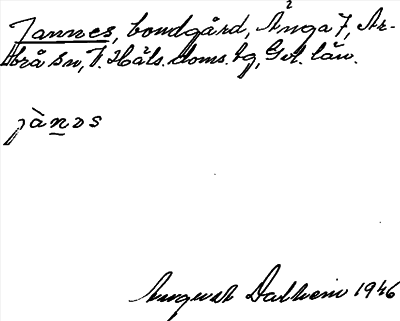 Jannes, bondgård, Änga 7, Ar-
brå sn, V. Häls. doms. tg, Gvl. län.
jànǝs
August Dalheim 1946